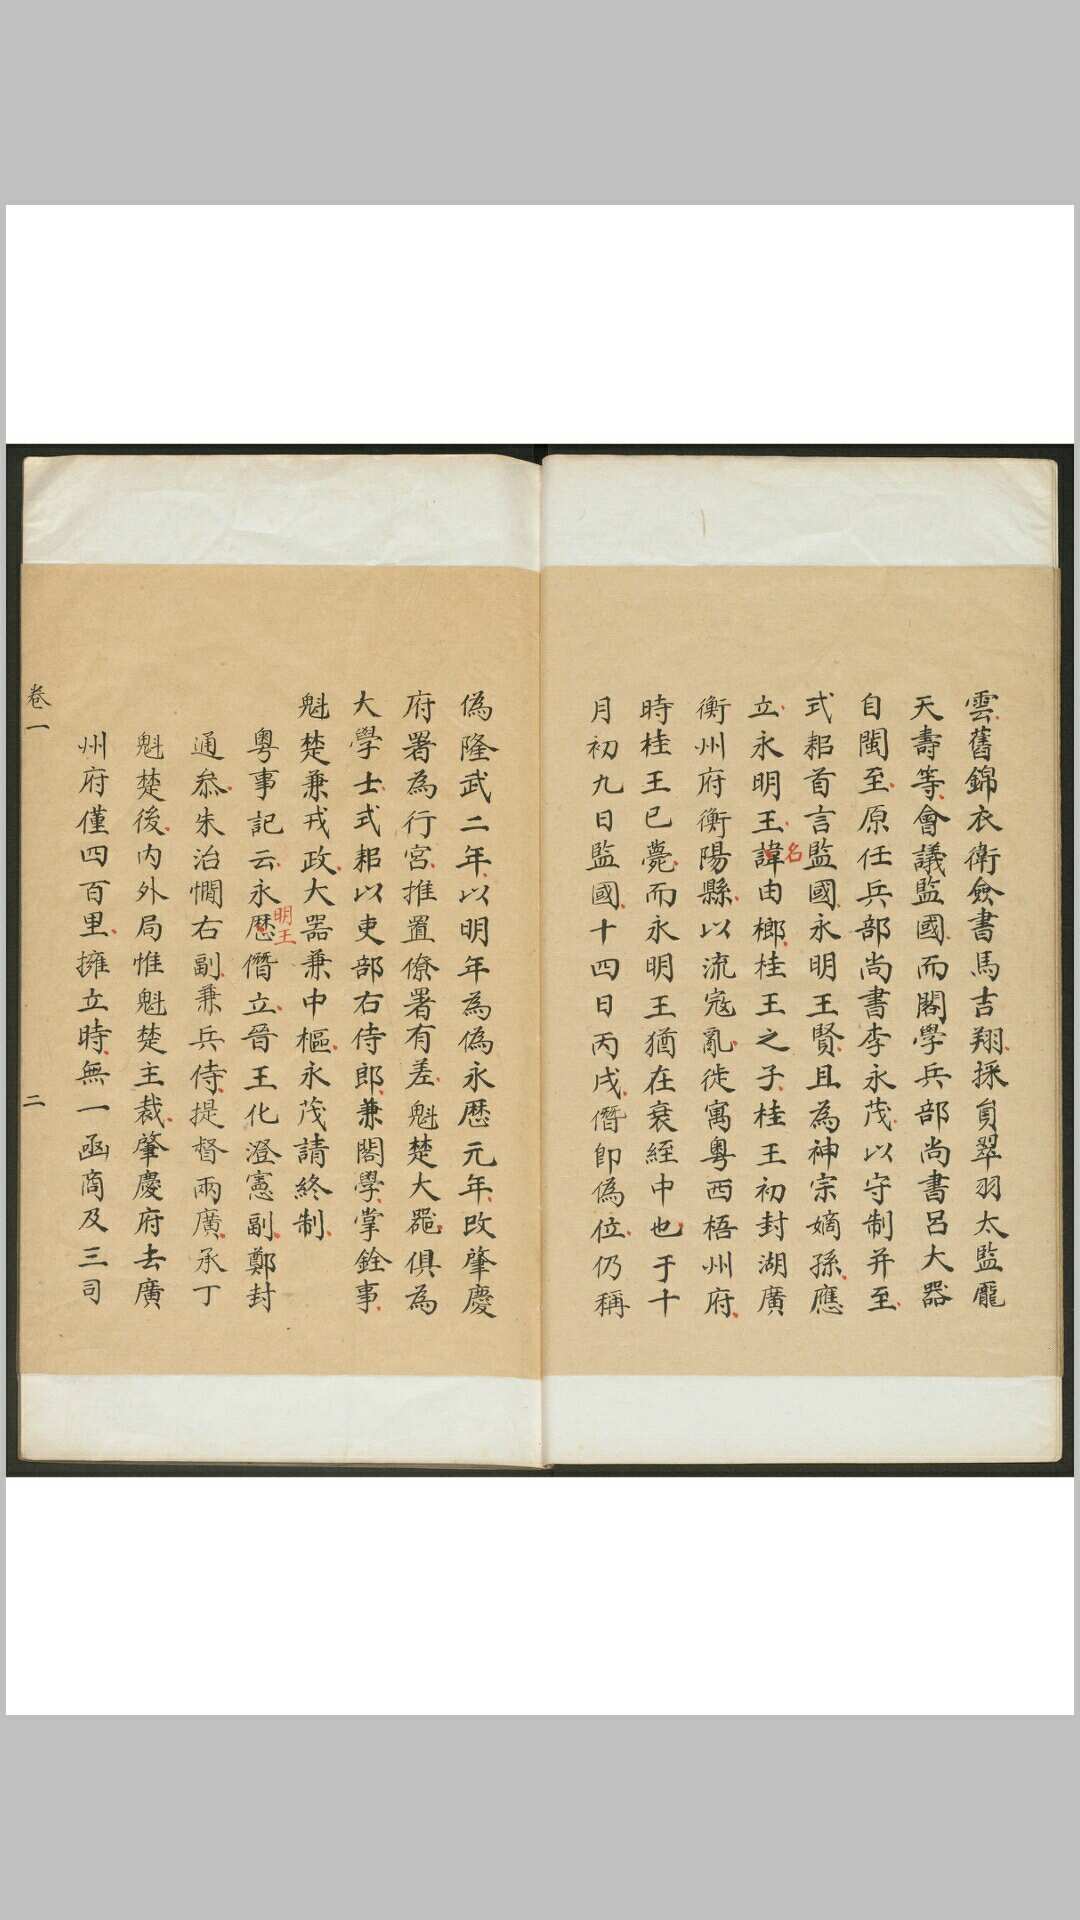 雲舊錦衣衛僉書馬吉翔採員翠羽太監龐
天壽等會議監國而閣學兵部尚書呂大器
自閩至原任兵部尚書李永茂以守制并至
式耜首言監國永明王賢且為神宗嫡孫應
立永明王諱由榔桂王之子桂王初封湖廣
名
衡州府衡陽縣以流寇亂徙寓粵西梧州府
時桂王已薨而永明王猶在衰絰中也于十
月初九日監國十四日丙戌僭即偽位仍稱
偽隆武二年以明年為偽永歷元年改肇慶
府署為行宮推置僚署有差魁楚大器俱為
大學士式耜以吏部右侍郎兼閣學掌銓事
魁楚兼戎政大器兼中樞永茂請終制
粵事記云永歷僭立晉王化澄憲副鄭封
明王
通叅朱治憪右副兼兵侍提督兩廣承丁
魁楚後內外局惟魁楚主裁肇慶府去廣
州府僅四百里擁立時無一函商及三司
卷一
二